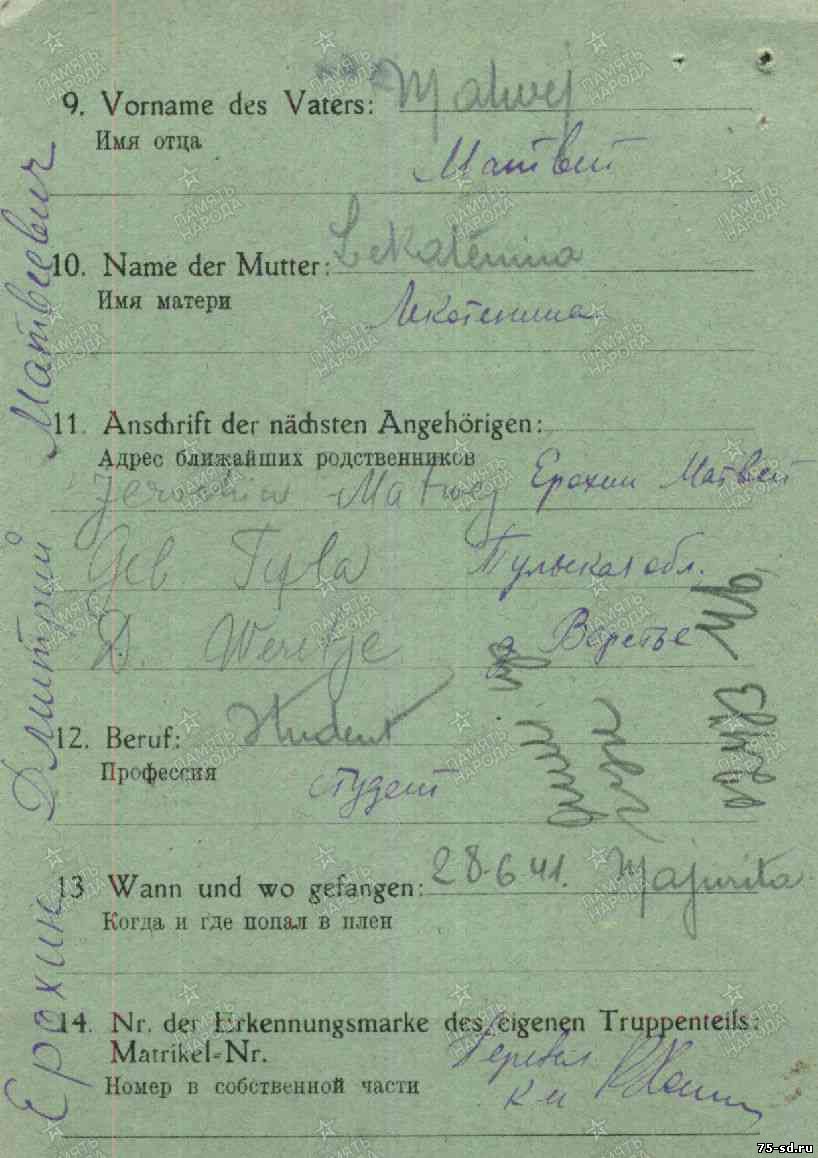 9. Vorname des Vaters: Matwej
Имя отца
Матвей
10. Name der Mutter: Lekatenina
Имя матери
Лекотенина
11. Anschrift der nächsten Angehörigen:
Адрес ближайших родственников
Jerochin Matwej Ерохин Матвей
Geb. Tula Тульская обл.
D. Weretje д Веретье
12. Beruf: Student
Профессия
студент
13 Wann und wo gefangen: 28.6.41. Majurita
Когда и где попал в плен
14. Nr. der Erkennungsmarke des eigenen Truppenteils:
Matrikel-Nr.
Номер в собственной части
Перевел
Ерохин Дмитрий Матвеевич
ПАМЯТЬ НАРОДА
75-sd.ru